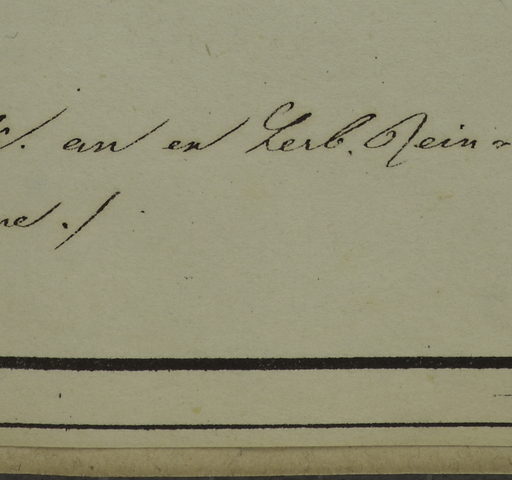 . an en Herb. Rein-
ne./